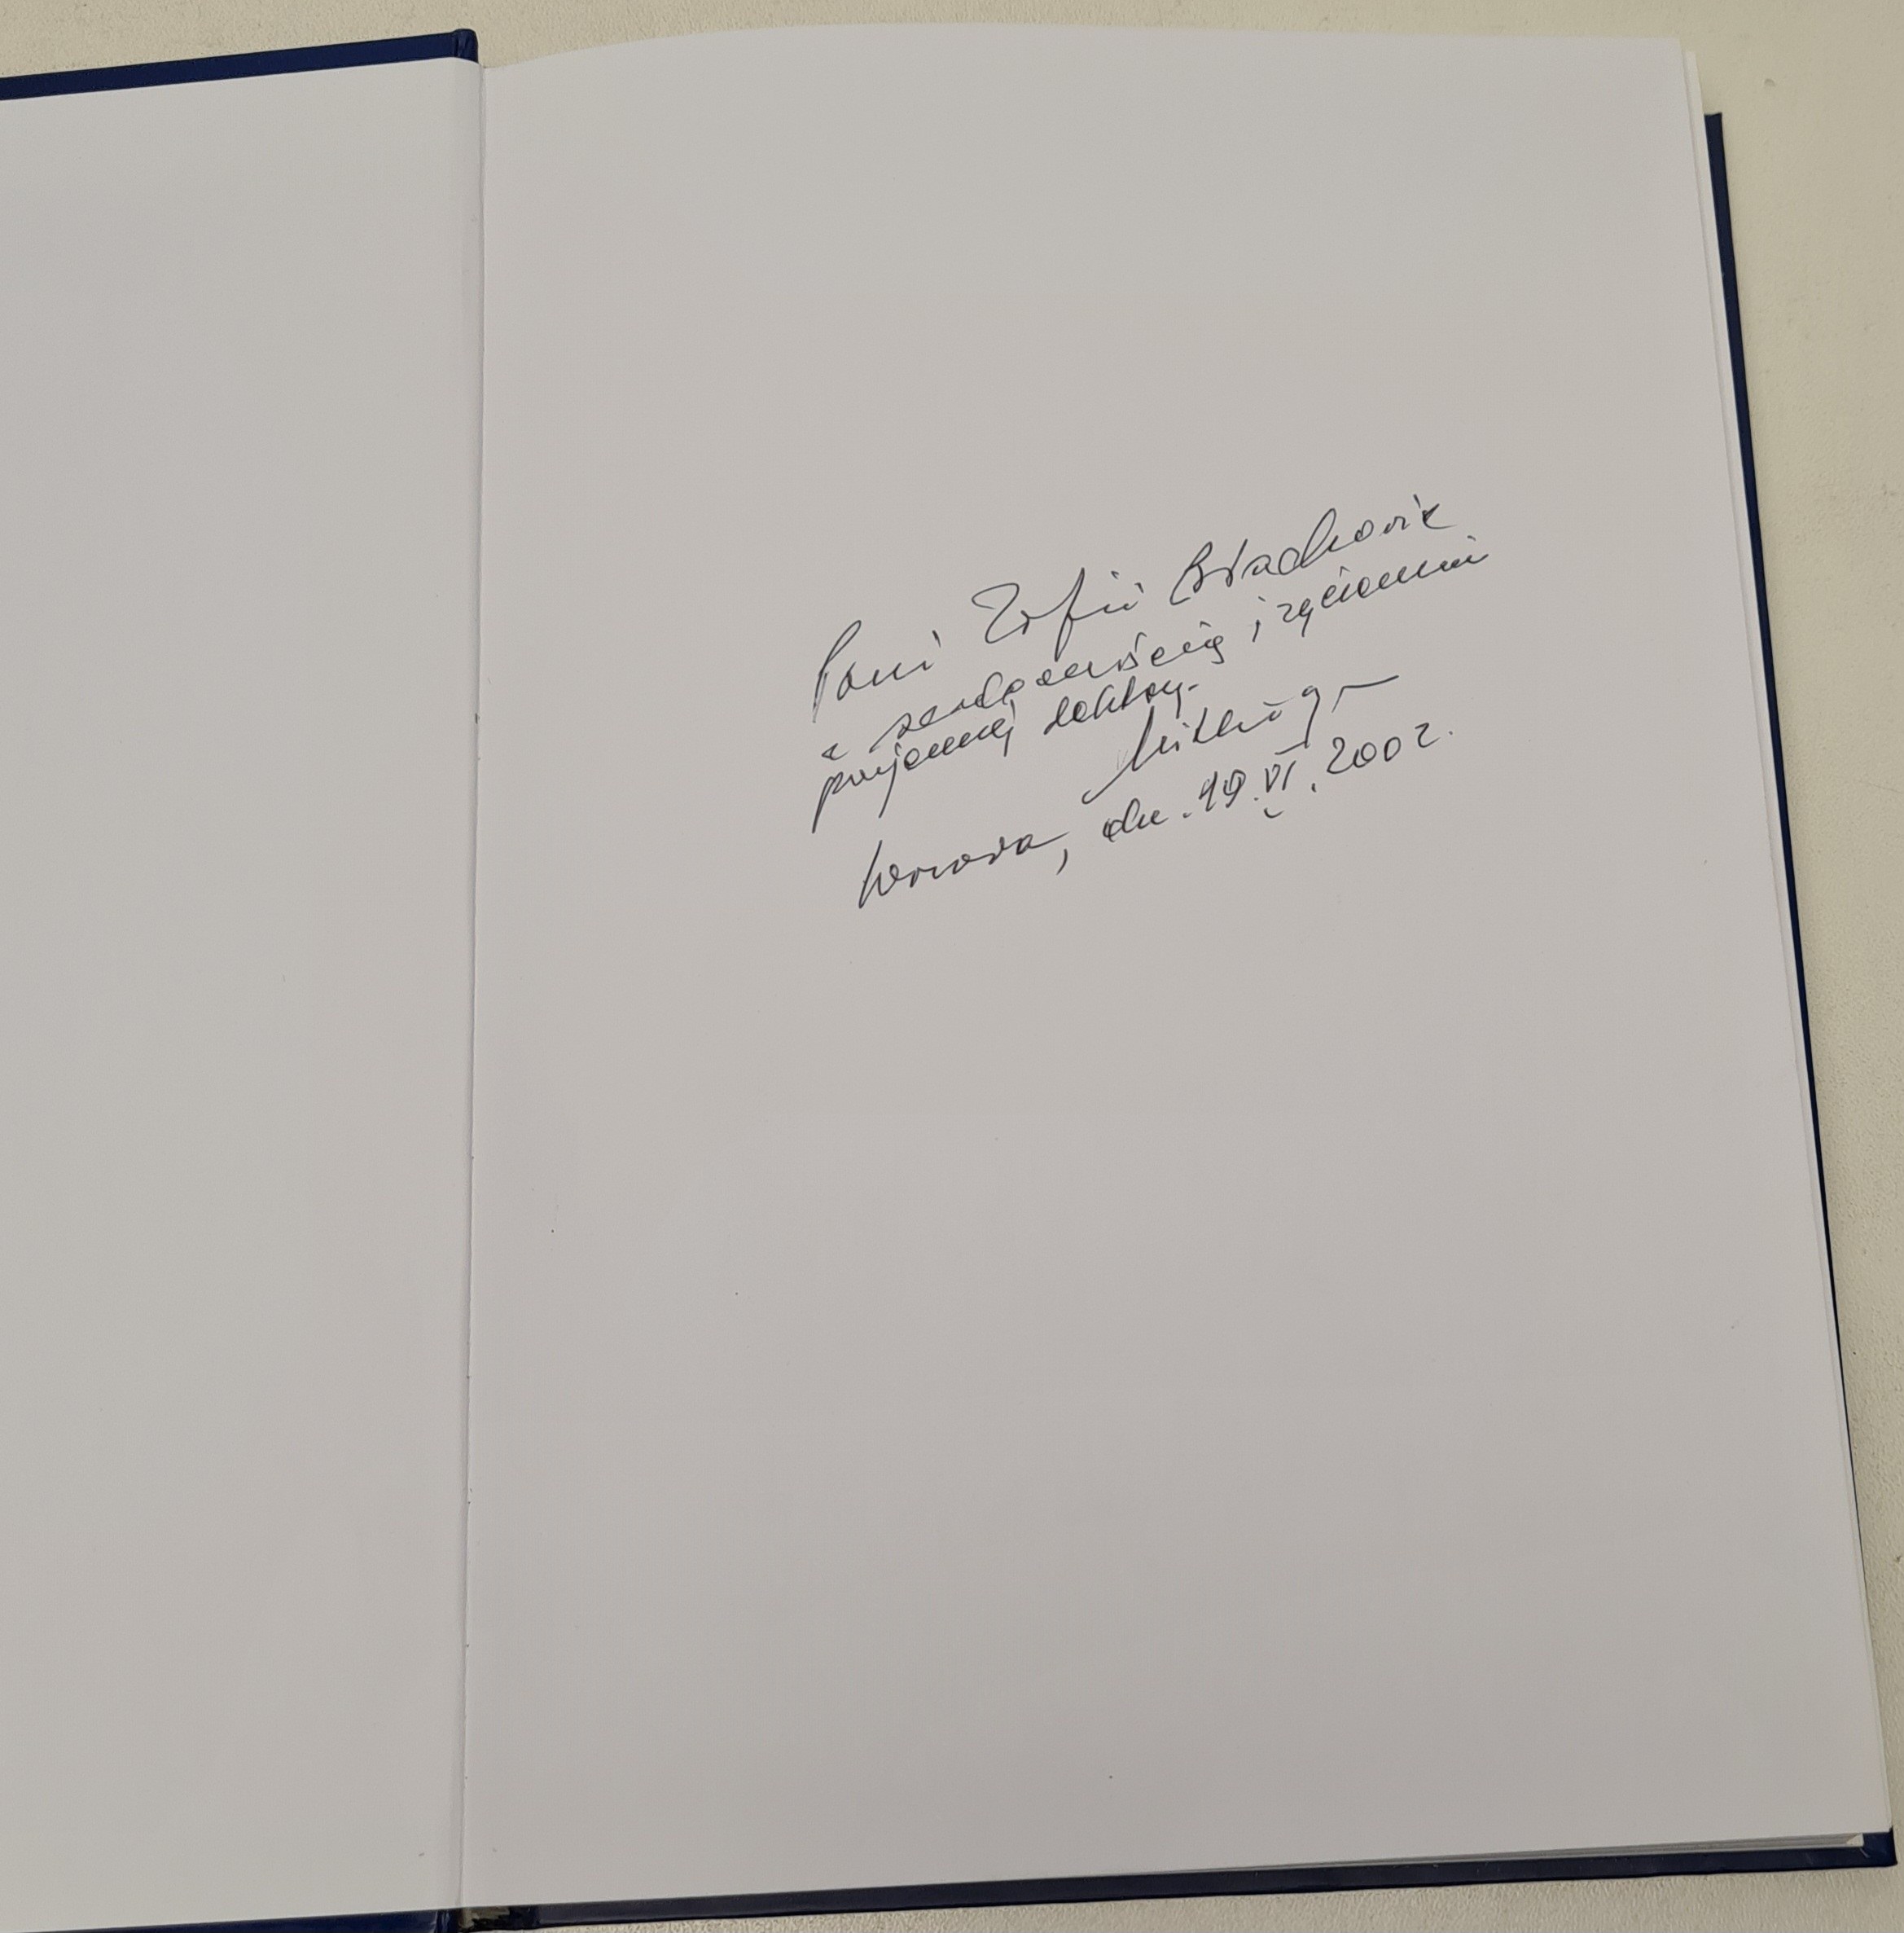 Pani Zofii Stachowicz
z serdecznością i życzeniami
przyjemnej lektury.
Warszawa, dn. 19.VI.2002.